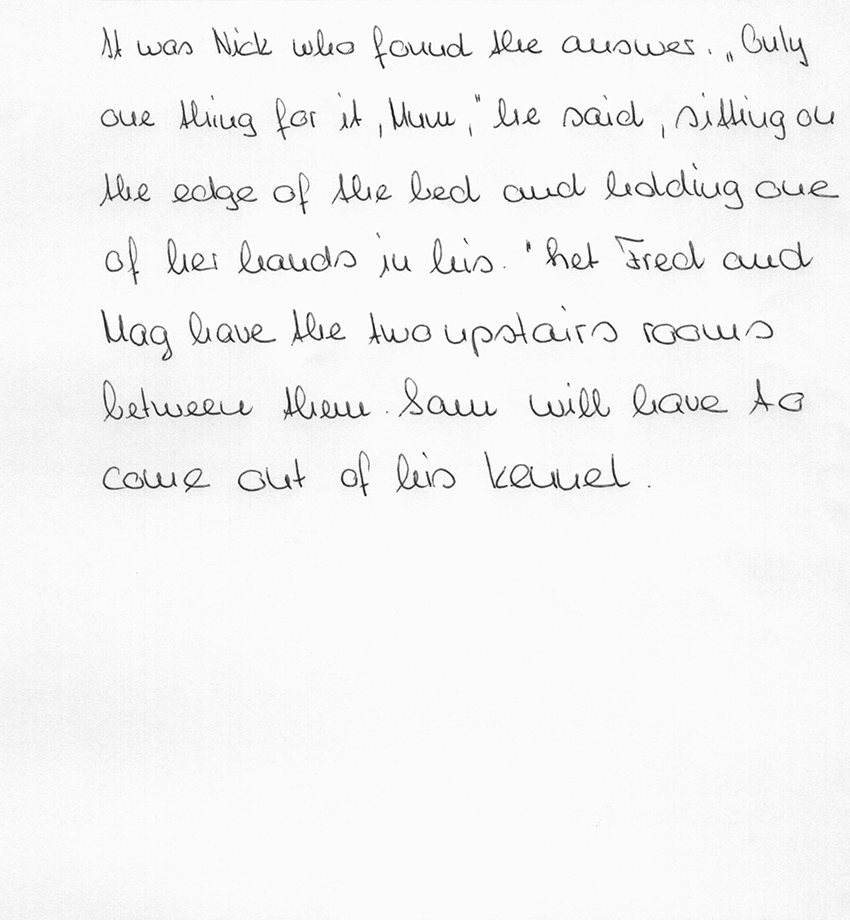 It was Nick who found the answer. „Only
one thing for it, Mum," he said, sitting on
the edge of the bed and holding one
of her hands in his. "Let Fred and
Mag have the two upstairs rooms
between them. Sam will have to
come out of his kennel.